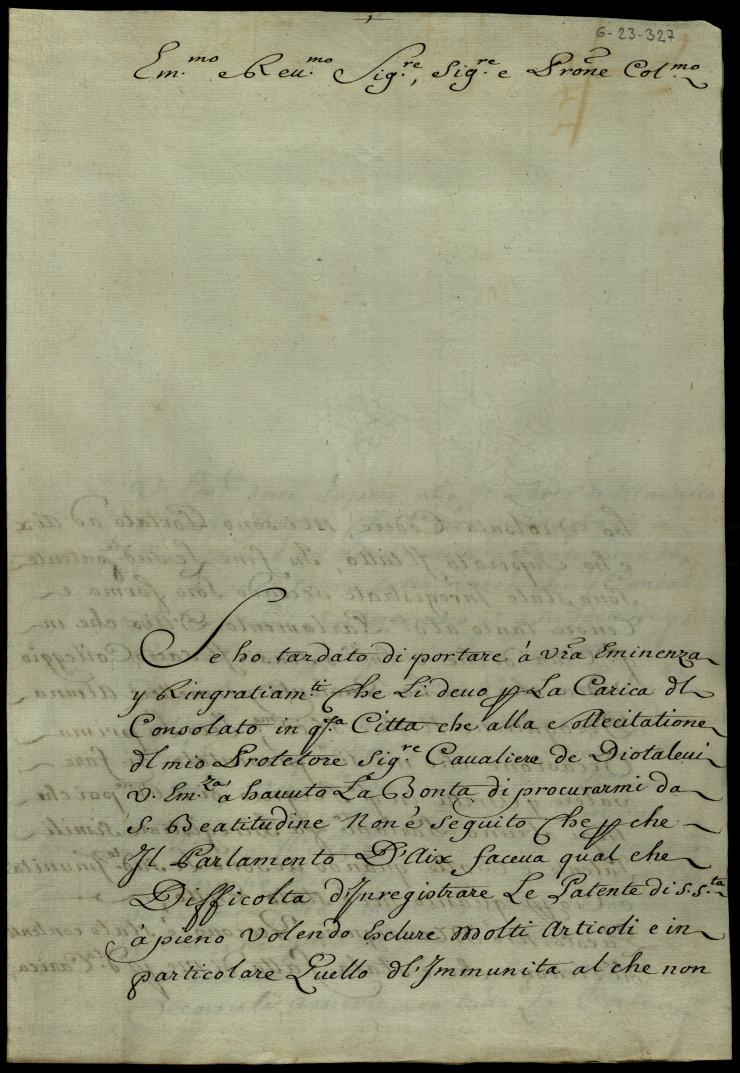 6-23-327
Em.mo e Reu.mo Sig.re, Sig.re e Prone Col.mo
Se ho tardato di portare à Vra Eminenza
y Ringratiam.ti Che Li deuo p La Carica dl
Consolato in q.ta Citta che alla Sollecitatione
dl mio Protetore Sig.re Caualiere de Diotaleui
V. Em.za a hauuto La Bonta di procurarmi da
S. Beatitudine Non è seguito Che p che
Il Parlamento D'Aix faceua qual che
Difficolta d'Inregistrare Le Patente di S. S.ta
à pieno Volendo Esclure Molti Articoli e in
particolare Quello dl'Immunita al che non